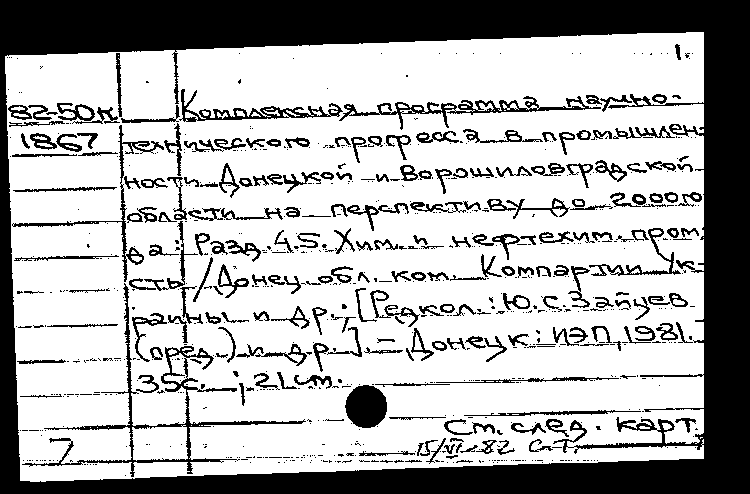 1.
82-50к Комплексная программа научно-
1867 технического прогресса в промышлен-
ности Донецкой и Ворошиловградской
области на перспективу до 2000го
да: Разд. 4.5. Хим. и нефтехим. пром-
сть / Донец. обл. ком. Компартии Ук-
раины и др.; [Редкол.: Ю.С.Зайцев
(пред.) и др.]. – Донецк: ИЭП, 1981.
35с. ; 21см.
См. след. карт.
7 15/VI-82 С.Т.